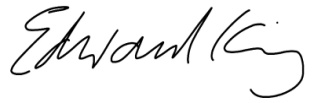 Edward King